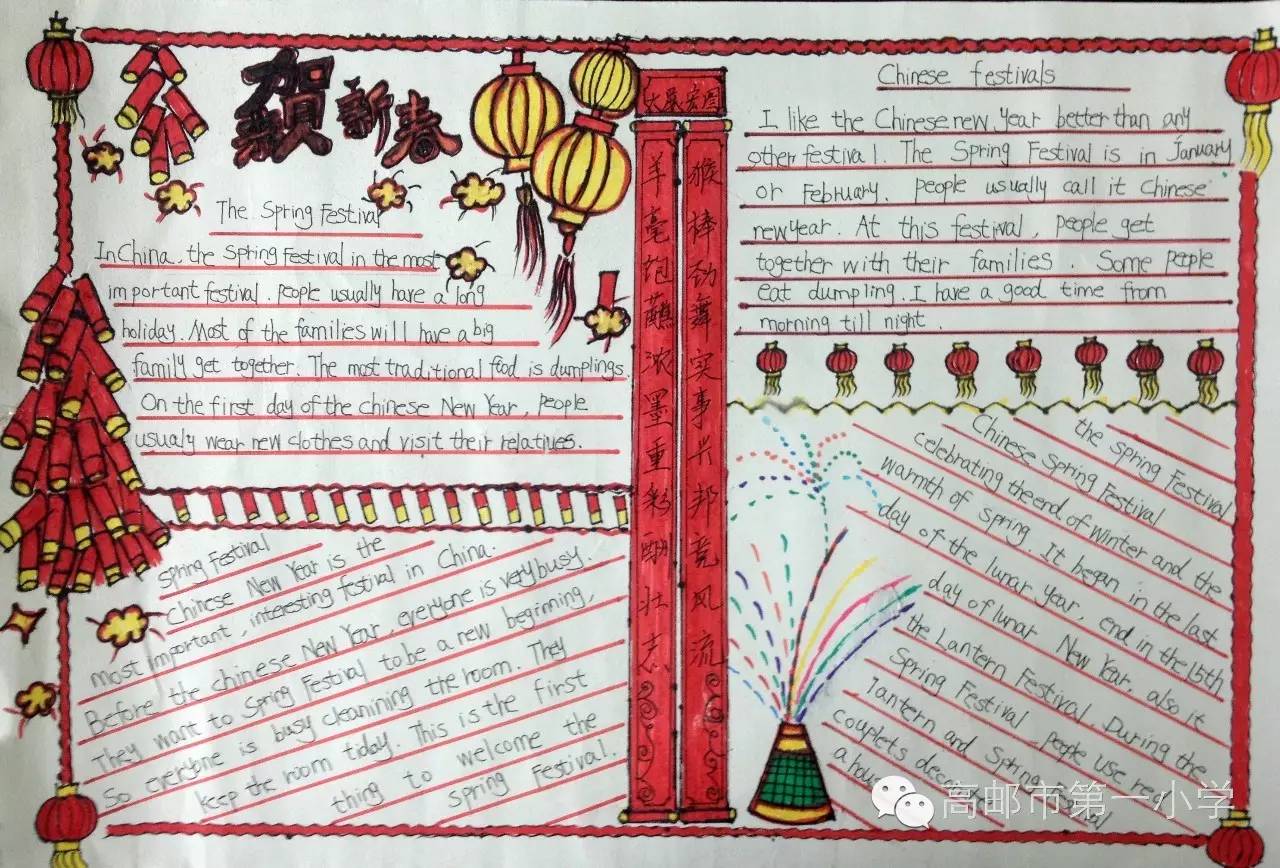 贺新春
The Spring Festival
In China, the Spring Festival in the most
important festival. people usually have a long
holiday. Most of the families will have a big
family get together. The most traditional food is dumplings.
On the first day of the chinese New Year, people
usualy wear new clothes and visit their relatives.
spring Festival
Chinese New Year is the
most important, interesting festival in China.
Before the chinese New Year, everyone is very busy.
They want to Spring Festival to be a new beginning,
So everyone is busy cleanining the room. They
keep the room tiday. This is the first
thing to welcome the
spring Festival.
大展宏图
羊毫饱蘸浓墨重彩酬壮志
猴棒劲舞实事兴邦竞风流
Chinese festivals
I like the Chinese new year better than any
other festival. The Spring Festival is in January
or February. people usually call it Chinese
new year. At this festival, people get
together with their families. Some people
eat dumpling. I have a good time from
morning till night.
the spring Festival
Chinese Spring Festival
celebrating the end of winter and the
warmth of spring. It began in the last
day of the lunar year, end in the 15th
day of lunar New Year, also it
the Lantern Festival. During the
Spring Festival, people use red
lantern and Spring
couplets decorate
a house
高邮市第一小学